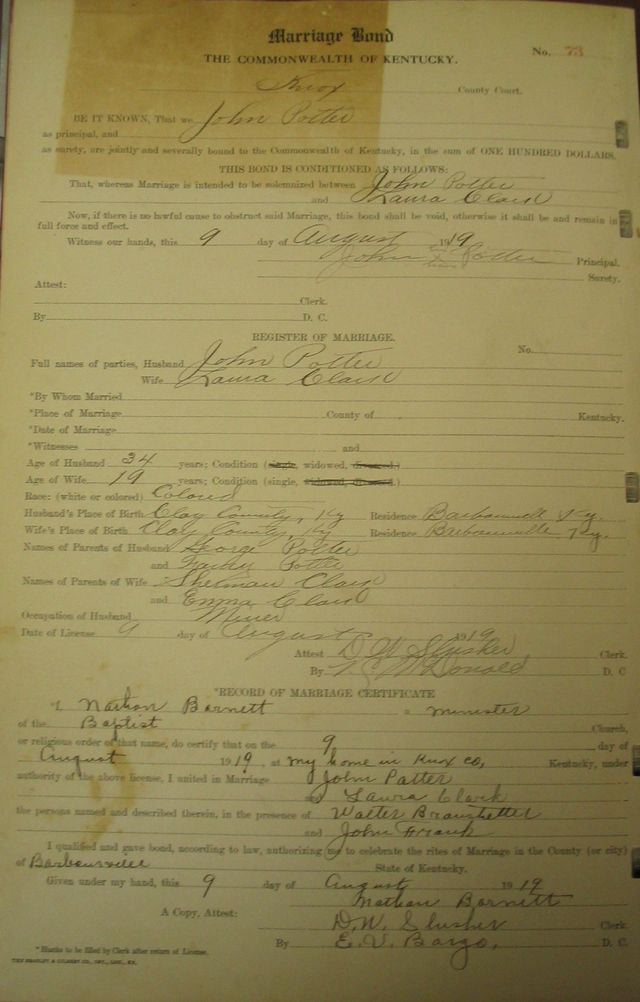 Marriage Bond
THE COMMONWEALTH OF KENTUCKY. No. 73
Knox County Court.
BE IT KNOWN, That we John Potter
as principal, and
as surety, are jointly and severally bound to the Commonwealth of Kentucky, in the sum of ONE HUNDRED DOLLARS.
THIS BOND IS CONDITIONED AS FOLLOWS:
That, whereas Marriage is intended to be solemnized between John Potter
and Laura Clark
Now, if there is no lawful cause to obstruct said Marriage, this bond shall be void, otherwise it shall be and remain in
full force and effect.
Witness our hands, this 9 day of August 1919
John x Potter Principal.
Surety.
Attest:
Clerk.
By D. C.
REGISTER OF MARRIAGE.
No.
Full names of parties, Husband John Potter
Wife Laura Clark
*By Whom Married
*Place of Marriage County of Kentucky.
*Date of Marriage
*Witnesses and
Age of Husband 34 years; Condition (single, widowed, divorced.)
Age of Wife 19 years; Condition (single, widowed, divorced.)
Race: (white or colored) Colored
Husband's Place of Birth Clay County, Ky Residence Barbourville Ky.
Wife's Place of Birth Clay County, Ky Residence Barbourville Ky.
Names of Parents of Husband George Potter
and Potter
Names of Parents of Wife Sherman Clark
and Emma Clark
Occupation of Husband Miner
Date of License 9 day of August 1919
Attest D. W. Slusher, Clerk.
By McDonald D. C
*RECORD OF MARRIAGE CERTIFICATE
I, Nathan Barnett a minister
of the Baptist Church,
or religious order of that name, do certify that on the 9 day of
August 1919, at my home in Knox co, Kentucky, under
authority of the above license, I united in Marriage John Patter
and Laura Clark
the persons named and described therein, in the presence of Walter Branstetter
and John Frank
I qualified and gave bond, according to law, authorizing me to celebrate the rites of Marriage in the County (or city)
of Barbourville State of Kentucky.
Given under my hand, this 9 day of August 1919
Nathan Barnett
A Copy, Attest: D. W. Slusher Clerk
By E. V. Bargo, D. C.
*Blanks to be filled by Clerk after return of License.